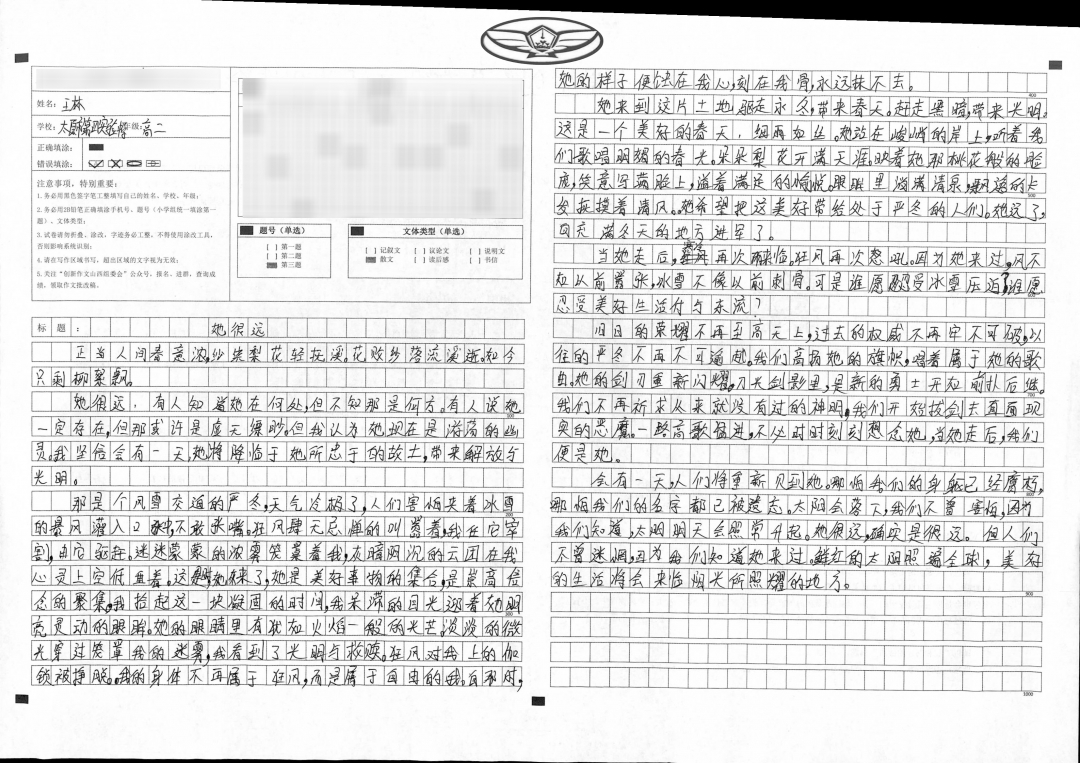 姓名：王林
学校：太原第 年级：高二
正确填涂：
错误填涂：
注意事项，特别重要：
1.务必用黑色签字笔工整填写自己的姓名、学校、年级；
2.务必用2B铅笔正确填涂手机号、题号（小学组统一填涂第一
题）、文体类型；
3.试卷请勿折叠、涂改，字迹务必工整，不得使用涂改工具，
否则影响系统识别；
4.请在写作区域书写，超出区域的文字视为无效；
5.关注“创新作文山西组委会”公众号，报名、进群、查询成
绩，领取作文批改稿。
题号（单选）
[ ] 第一题
[ ] 第二题
第三题
文体类型（单选）
[ ] 记叙文 [ ] 议论文 [ ] 说明文
散文 [ ] 读后感 [ ] 书信
标题： 她很远
正当人间春意浓，纱装梨花轻抚溪。花败步落流溪逝，如今
只剩柳絮飘。
她很远，有人知道她在何处，但不知那是何方。有人说她
一定存在，但那或许是虚无缥缈。但我认为她现在是游荡的幽
灵。我坚信会有一天，她将降临于她所忠于的故土，带来解放与
光明。
那是个风雪交迫的严冬，天气冷极了，人们害怕夹着冰雪
的暴风灌入口 不敢张嘴。狂风肆无忌惮的叫嚣着，我任它宰
割，由它驱赶。迷迷蒙蒙的浓雾笼罩着我，灰暗阴沉的云团在我
心灵上空低垂着。这 她来了，她是美好事物的集合，是崇高信
念的聚集，我拾起这一块凝固的时间，我呆滞的目光迎着她明
亮灵动的眼眸。她的眼睛里有犹如火焰一般的光芒，淡淡的微
光穿过笼罩我的迷雾，我看到了光明与救赎。狂风对我上的枷
锁被挣脱。我的身体不再属于狂风，而是属于自由的我。自那时，
她的样子便 在我心，刻在我骨，永远抹不去。
400
她来到这片土地驱走永冬，带来春天。赶走黑暗，带来光明。
这是一个美好的春天，细雨如丝。她站在峻峭的岸上，听着我
们歌唱明媚的春光。朵朵梨花开满天涯。映着她那桃花般的脸
庞，笑意写满脸上，溢着满足的愉悦。眼眶里 满清泉，飘逸的长
发抚摸着清风。她希望把这美好带给处于严冬的人们。她远了，
向充满冬天的地方进军了。
当她走后， 再次 临。狂风再次怒吼。因为她来过，风不
如以前嚣张，冰雪不像以前刺骨。可是谁愿 受冰雪压迫？谁愿
600
忍受美好生活付与东流？
旧日的荣耀不再至高无上，过去的权威不再牢不可破，以
往的严冬不再不可逾越。我们高扬她的旗帜，唱着属于她的歌
曲。她的剑刃重新闪耀，刀光剑影里，是新的勇士开始前扑后继。
700
我们不再祈求从来就没有过的神明，我们开始拔剑去直面现
实的恶魔。一路高歌猛进，不必时时刻刻想念她，当她走后，我们
便是她。
会有一天，人们将重新见到她。哪怕我们的身躯已经腐朽，
800
哪怕我们的名字都已被遗忘。太阳会落下，我们不曾害怕，因为
我们知道，太阳明天会照常升起。她很远，确实是很远。但人们
不曾迷惘，因为我们知道她来过。鲜红的太阳照遍全球，美好
的生活将会来临阳光所照耀的地方。
900
1000